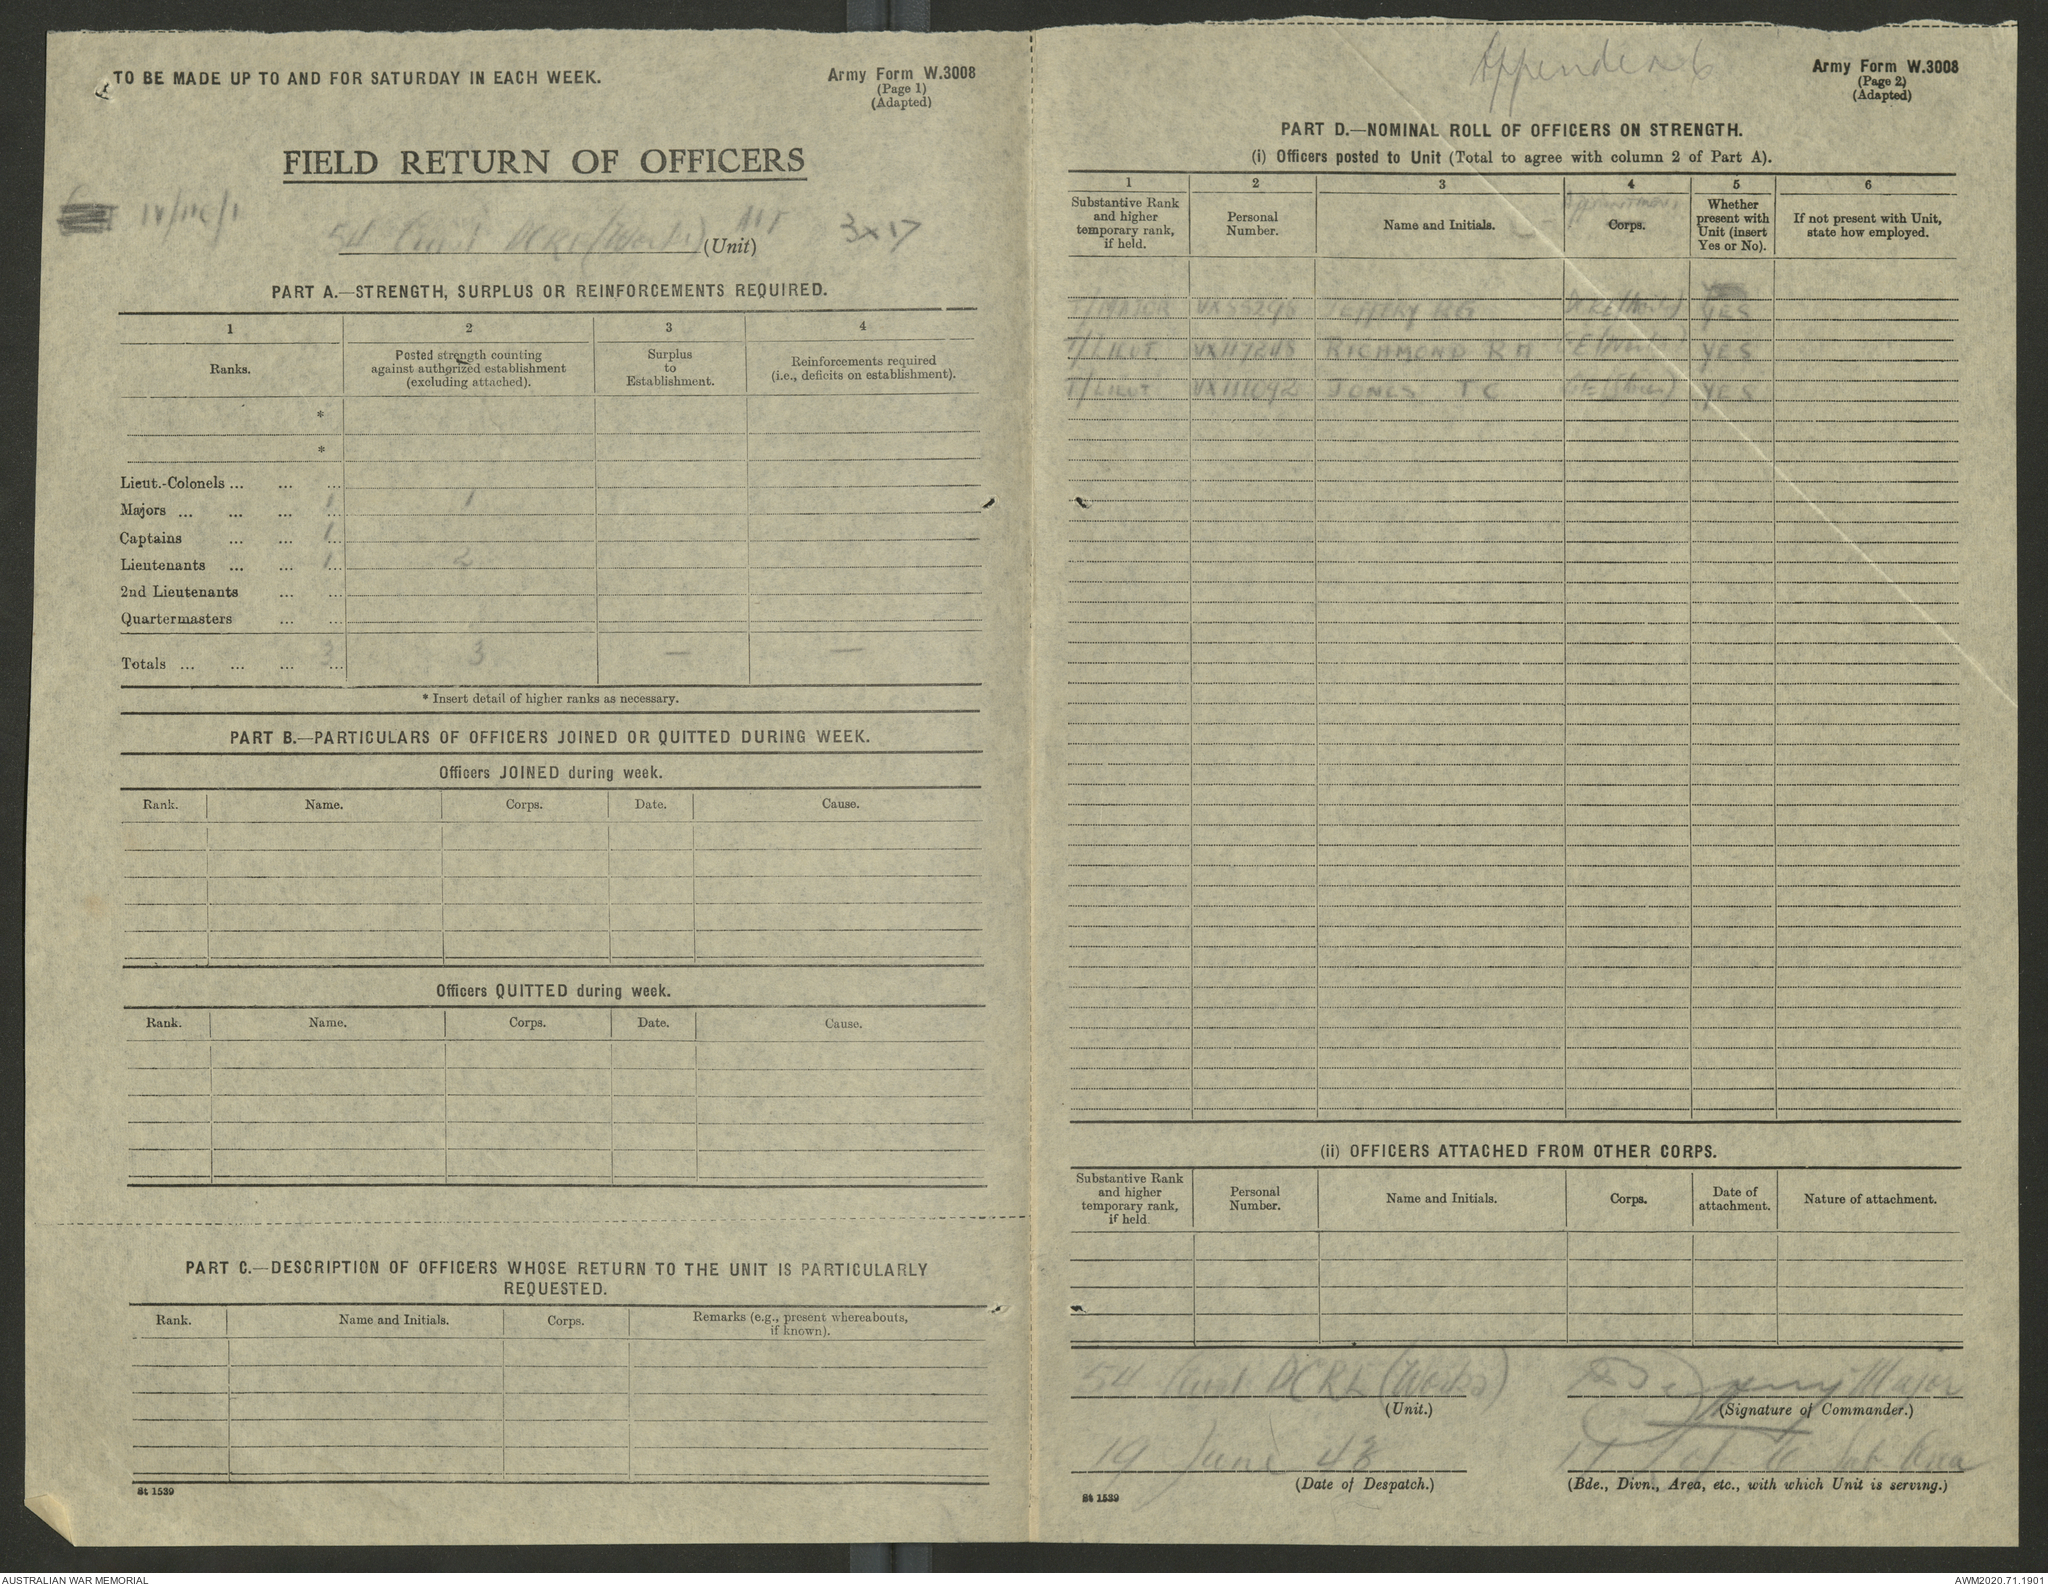 TO BE MADE UP TO AND FOR SATURDAY IN EACH WEEK.
Army Form W.3008
(Page 1)
(Adapted)
FIELD RETURN OF OFFICERS
IV/11c/1
54 Aust DCRE (Works) (Unit)
3x17
PART A.—STRENGTH, SURPLUS OR REINFORCEMENTS REQUIRED.
1 2 3 4
Ranks.
Posted strength counting against authorized establishment (excluding attached).
Surplus to Establishment.
Reinforcements required (i.e., deficits on establishment).
*
*
Lieut.-Colonels ... ... ...
Majors ... ... ... ... 1 1
Captains ... ... ... 1
Lieutenants ... ... ... 1 2
2nd Lieutenants ... ...
Quartermasters ... ...
Totals ... ... ... ... 3 3 — —
* Insert detail of higher ranks as necessary.
PART B.—PARTICULARS OF OFFICERS JOINED OR QUITTED DURING WEEK.
Officers JOINED during week.
Rank. Name. Corps. Date. Cause.
Officers QUITTED during week.
Rank. Name. Corps. Date. Cause.
PART C.—DESCRIPTION OF OFFICERS WHOSE RETURN TO THE UNIT IS PARTICULARLY
REQUESTED.
Rank. Name and Initials. Corps. Remarks (e.g., present whereabouts, if known).
St 1539
Appendix 6
Army Form W.3008
(Page 2)
(Adapted)
PART D.—NOMINAL ROLL OF OFFICERS ON STRENGTH.
(i) Officers posted to Unit (Total to agree with column 2 of Part A).
1 2 3 4 5 6
Substantive Rank and higher temporary rank, if held.
Personal Number.
Name and Initials.
Appointment
Corps.
Whether present with Unit (insert Yes or No).
If not present with Unit, state how employed.
T/MAJOR VX55295 JEFFERY RG DCRE (Works) YES
T/LIEUT VX117245 RICHMOND R M GE (Works) YES
T/LIEUT JONES T C GE (Stores) YES
(ii) OFFICERS ATTACHED FROM OTHER CORPS.
Substantive Rank and higher temporary rank, if held.
Personal Number.
Name and Initials.
Corps.
Date of attachment.
Nature of attachment.
54 Aust DCRE (Works)
(Unit.)
Major
(Signature of Commander.)
19 June 43
(Date of Despatch.)
(Bde., Divn., Area, etc., with which Unit is serving.)
St 1539
AUSTRALIAN WAR MEMORIAL
AWM2020.71.1901